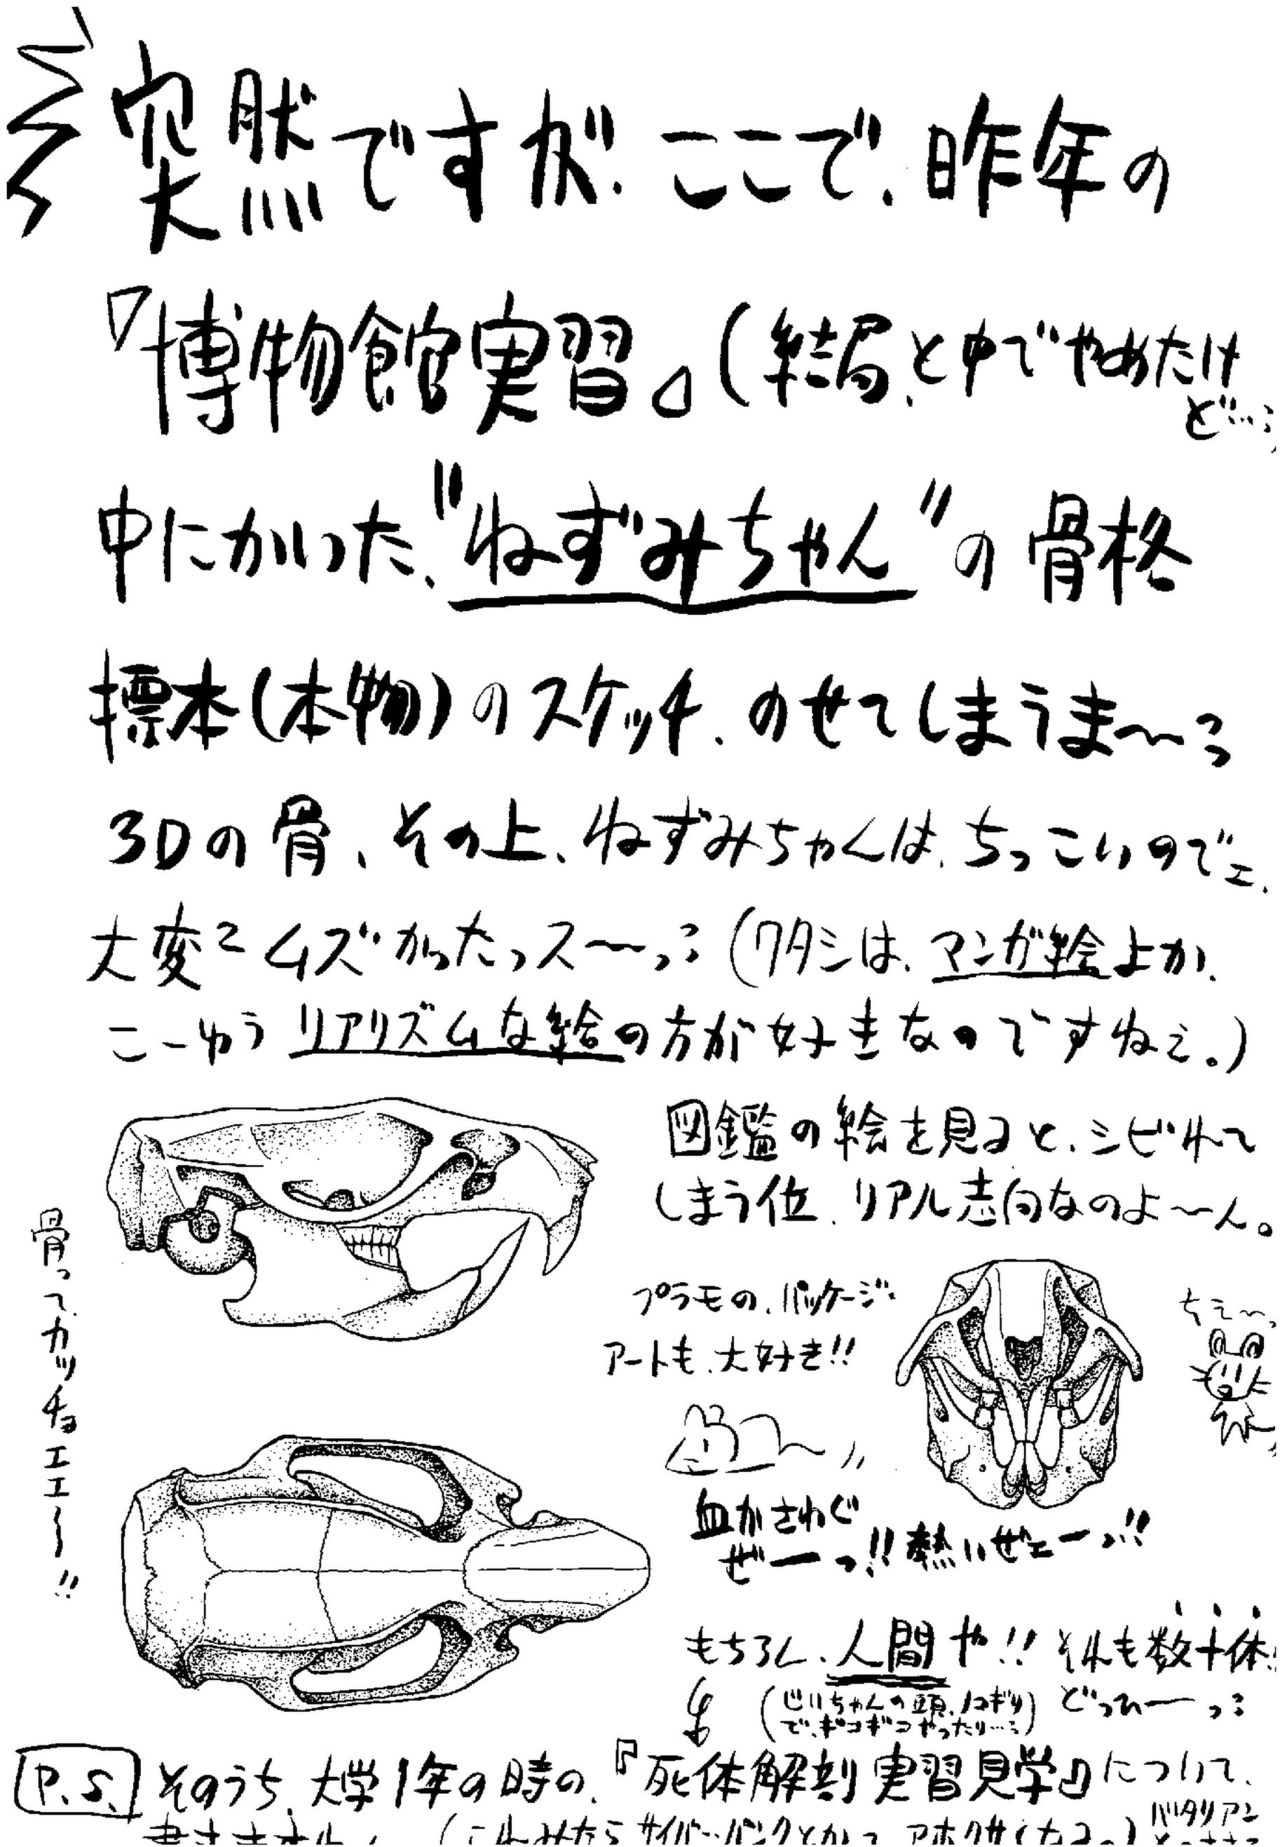 突然ですが、ここで、昨年の
『博物館実習』(結局、と中でやめたけ
ど…;
中にかいった、"ねずみちゃん"の骨格
標本(本物)のスケッチ、のせてしまうま〜っ
3Dの骨、その上、ねずみちゃんは、ちっこいのでェ、
大変ニムズかったっス〜っ;(ワタシは、マンガ絵よか、
こーゆうリアリズムな絵の方が好きなのですねぇ。)
図鑑の絵を見ると、シビれて
しまう位、リアル志向なのよ〜ん。
骨って、カッチョエエ〜!!
プラモの、パッケージ・
アートも、大好き!!
ちえ〜、
血がさわぐ
ぜーっ!!熱いぜェーっ!!
もちろん、人間や!!それも数十体!!
(じいちゃんの頭、ノコギリ
で、ギコギコやったり…;)
どっひーっ;
P.S. そのうち、大学1年の時の、『死体解剖実習見学』について、
書きます
(これみたら サイバーパンクとかって、アホクサくなるっ)
バタリアン